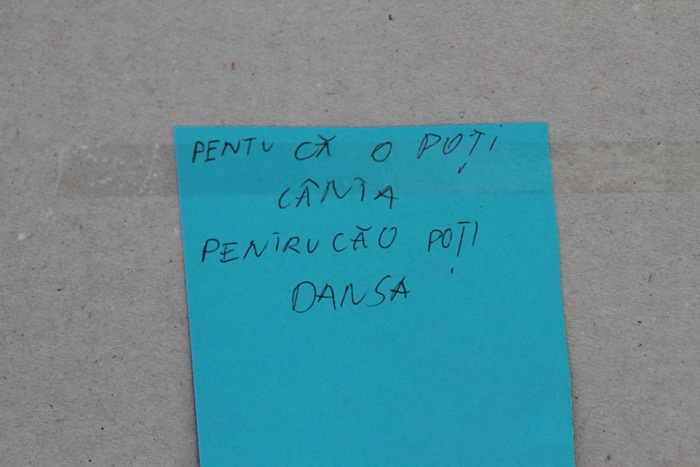 PENTU CĂ O POȚI
CÂNTA
PENTRU CĂ O POȚI
DANSA